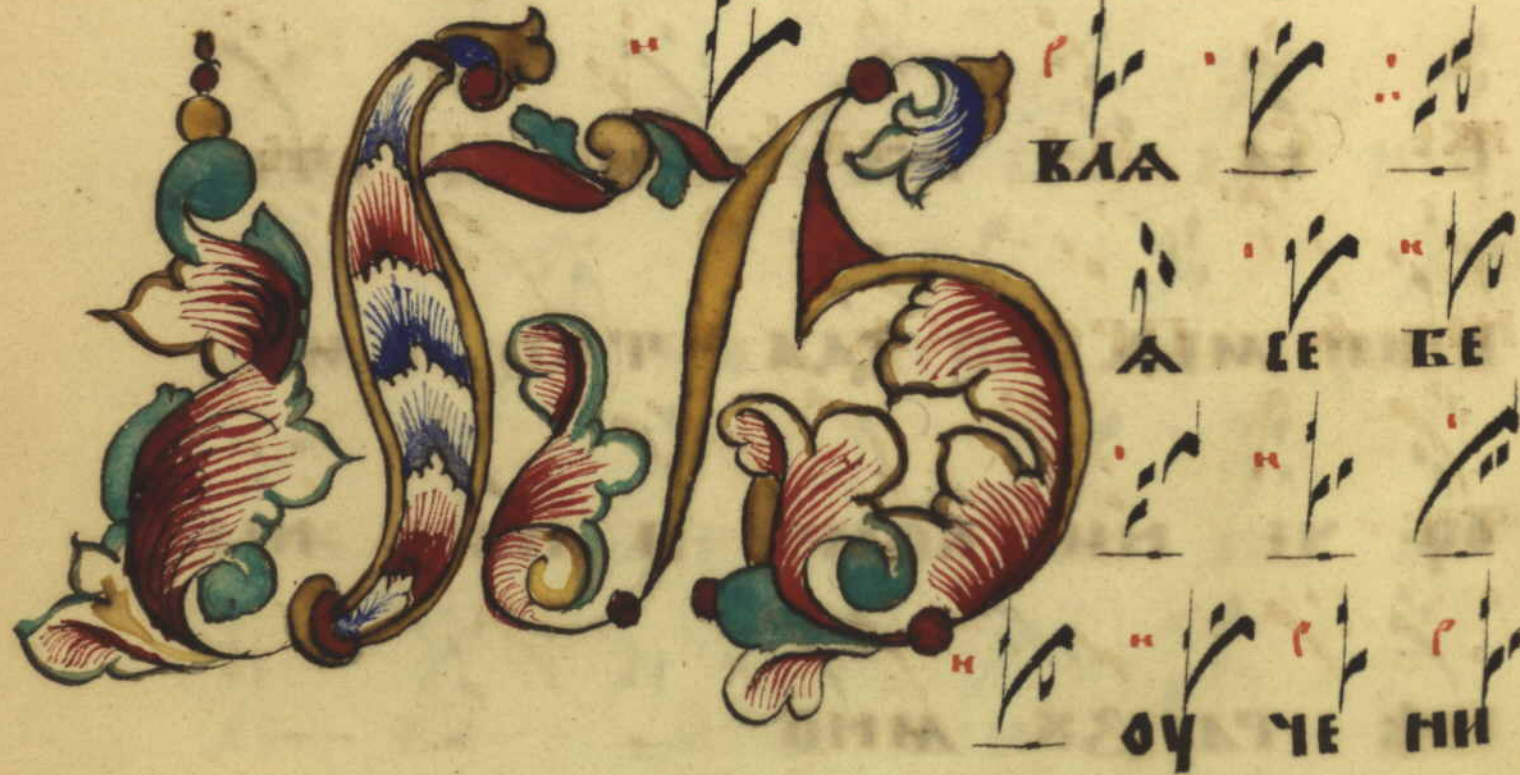 Ꙗ ВЛѦ
Ѧ СЕ БЕ
ОУ ЧЕ НИ